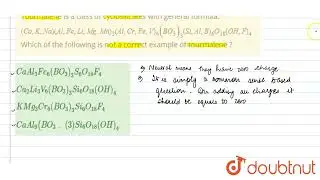 Tourmaline is a class of cyclosilicates with general formula:
(Ca, K, Na)(Al, Fe, Li, Mg, Mn)₃(Al, Cr, Fe, V)₆(BO₃)₃(Si, Al, B)₆O₁₈(OH, F)₄
Which of the following is not a correct example of tourmaline ?
CaAl₃Fe₆(BO₃)₃S₆O₁₈F₄
Ca₂Li₃V₆(BO₃)₃Si₆O₁₈(OH)₄
KMg₃Cr₆(BO₃)₃Si₆O₁₈F₄
CaAl₉(BO₃ .. (3)Si₆O₁₈(OH)₄
Neutral means they have zero charge
It is simply a common sense based
question. On adding all charges it
should be equals to zero
doubtnut